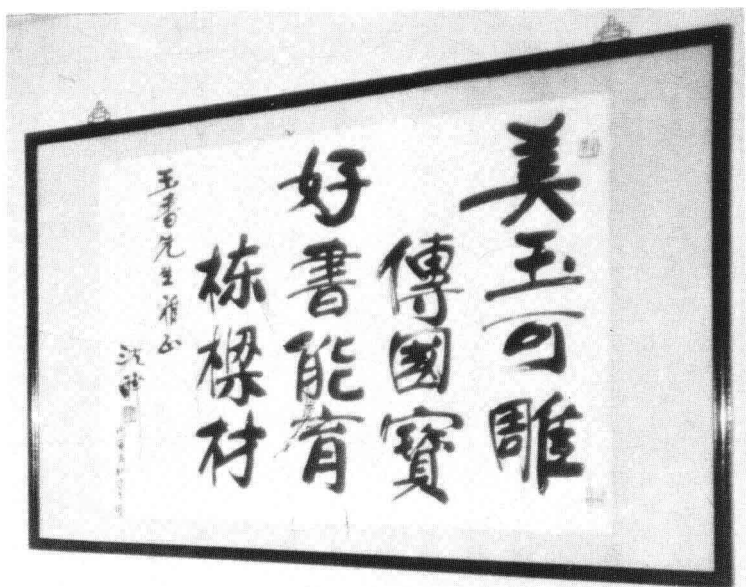 美玉可雕
傳國寶
好書能育
栋樑材
玉書先生雅正